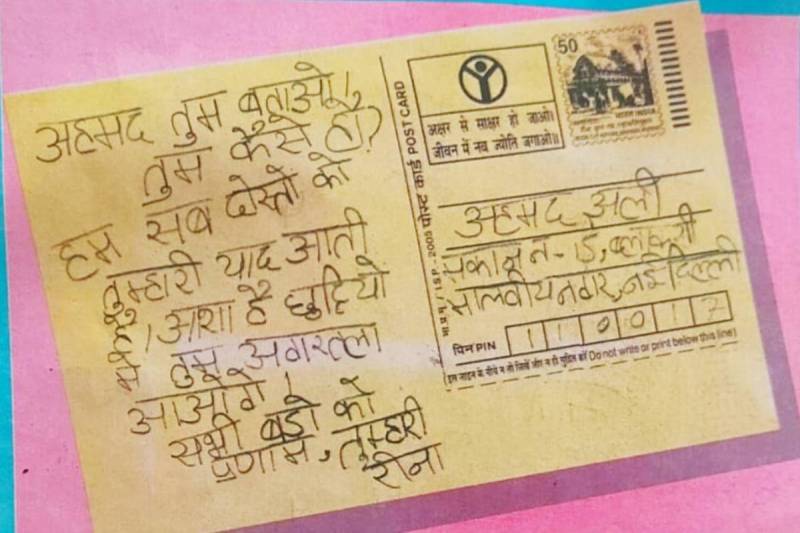 अहमद तुम बताओ!
तुम कैसे हो?
हम सब दोस्तो को
तुम्हारी याद आती
है। आशा है छुट्टियो
मे तुम अगरतला
आओगे!
सभी बडो को
प्रणाम, तुम्हारी
रीना
पोस्ट कार्ड POST CARD
50
अक्षर से साक्षर हो जाओ।
जीवन में नव ज्योति जगाओ॥
भारत INDIA
अहमद अली
मकान न-15, ब्लाक
मालवीय नगर, नई दिल्ली
पिन PIN 110017
(इस लाइन के नीचे न तो लिखें और न ही मुद्रित करें Do not write or print below this line)